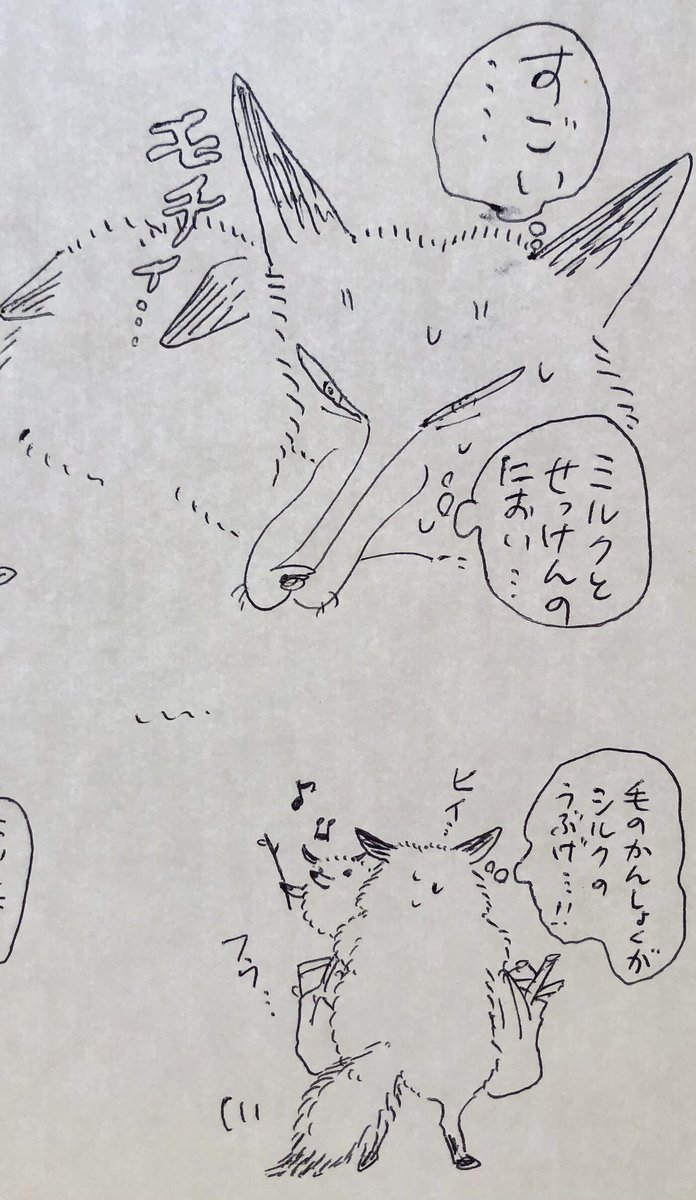 すごい
……
モチィ…
ミルクと
せっけんの
におい…
毛のかんしょくが
シルクの
うぶげ…!!
ヒイ…
フゥ…